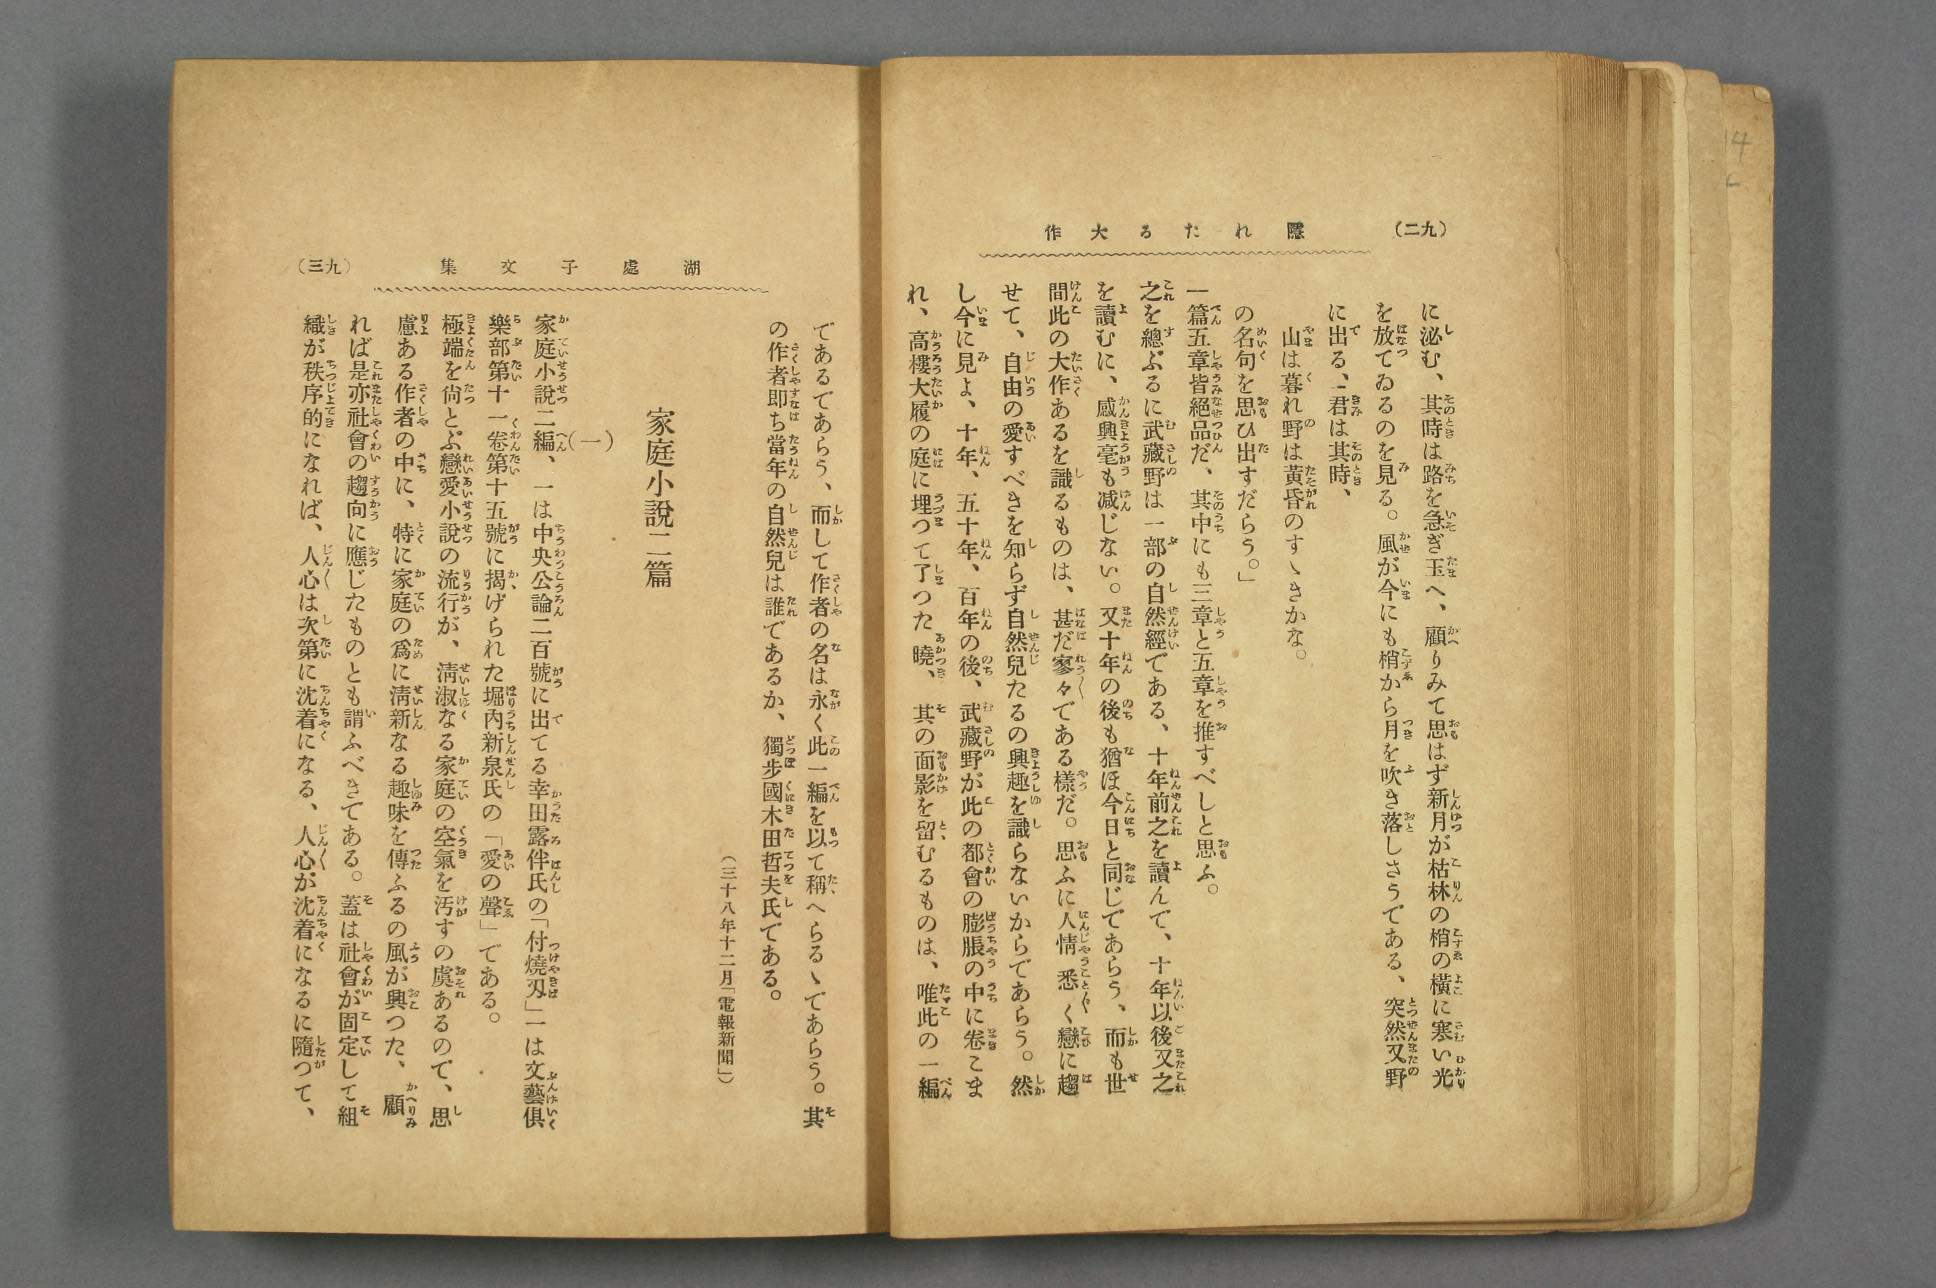 (九二)
隱れたる大作
に泌む、其時は路を急ぎ玉へ、顧りみて思はず新月が枯林の梢の横に寒い光
を放てゐるのを見る。風が今にも梢から月を吹き落しさうである、突然又野
に出る、君は其時、
山は暮れ野は黄昏のすゝきかな。
の名句を思ひ出すだらう。」
一篇五章皆絕品だ、其中にも三章と五章を推すべしと思ふ。
之を總ぶるに武藏野は一部の自然經である、十年前之を讀んで、十年以後又之
を讀むに、感興毫も減じない。又十年の後も猶ほ今日と同じであらう、而も世
間此の大作あるを識るものは、甚だ寥々である樣だ。思ふに人情悉く戀に趨
せて、自由の愛すべきを知らず自然兒たるの興趣を識らないからであらう。然
し今に見よ、十年、五十年、百年の後、武藏野が此の都會の膨脹の中に卷こま
れ、高樓大履の庭に埋つて了つた曉、其の面影を留むるものは、唯此の一編
湖處子文集
(九三)
であるであらう、而して作者の名は永く此一編を以て稱へらるゝであらう。其
の作者卽ち當年の自然兒は誰であるか、獨步國木田哲夫氏である。
(三十八年十二月「電報新聞」)
家庭小說二篇
(一)
家庭小說二編、一は中央公論二百號に出てる幸田露伴氏の「付燒刄」一は文藝俱
樂部第十一卷第十五號に揭げられた堀內新泉氏の「愛の聲」である。
極端を尙とぶ戀愛小說の流行が、淸淑なる家庭の空氣を汚すの虞あるので、思
慮ある作者の中に、特に家庭の爲に淸新なる趣味を傳ふるの風が興つた、顧
れば是亦社會の趨向に應じたものとも謂ふべきてある。蓋は社會が固定して組
織が秩序的になれば、人心は次第に沈着になる、人心が沈着になるに隨つて、